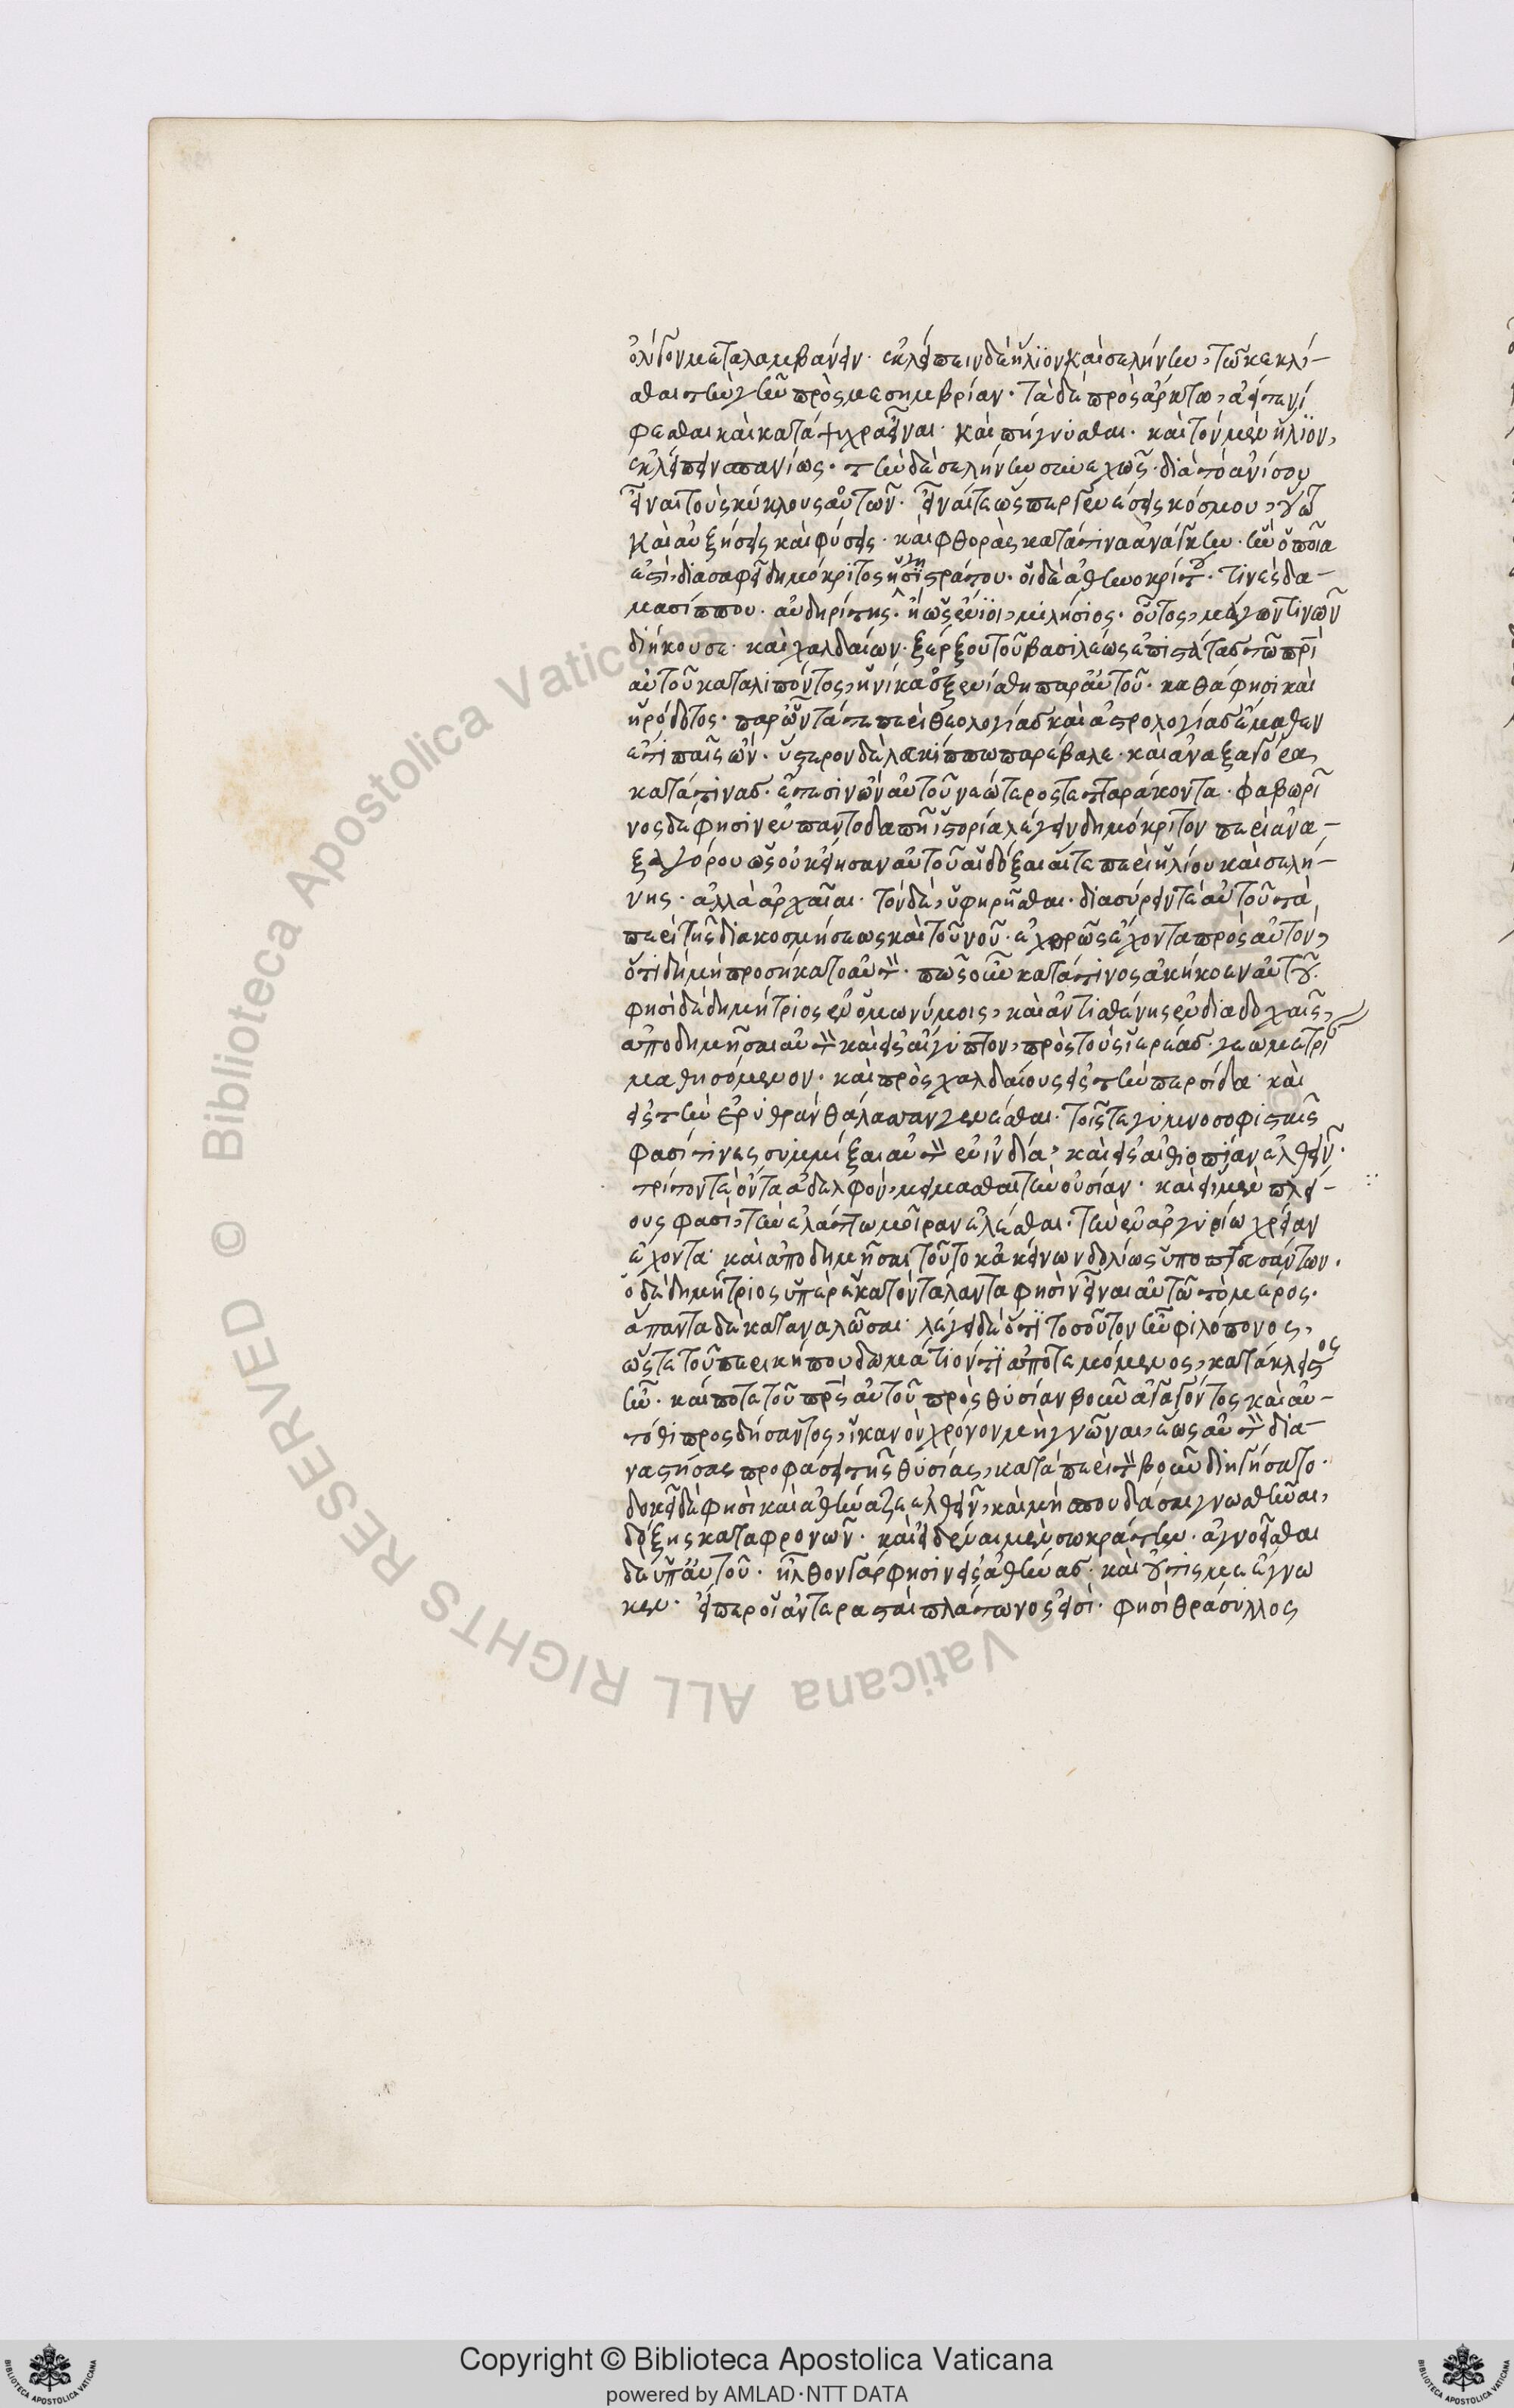 ὀλίγον μεταλαμβάνειν. ἐκλείπειν δὲ ἥλιον καὶ σελήνην, τῶ κεκλί-
σθαι τὴν γῆν πρὸς μεσημβρίαν. τὰ δὲ πρὸς ἄρκτω, ἀεί τε νί
φεσθαι καὶ κατάψυχρα εἶναι. καὶ πήγνυσθαι. καὶ τὸν μὲν ἥλιον,
ἐκλείπειν σπανίως. τὴν δὲ σελήνην συνεχῶς. διὰ τὸ ἀνίσου
εἶναι τοὺς κύκλους αὐτῶν. εἶναί τε ὥσπερ γενέσεις κόσμου, οὕτω
καὶ αὐξήσεις καὶ φύσεις. καὶ φθορὰς κατά τινα ἀνάγκην. ἣν ὁποία
ἐστὶ, διασαφεῖ δημόκριτος ἡγησιστράτου. οἱ δὲ ἀθηνοκρίτου. τινὲς δα-
μασίππου. αὐδηρίτης. ἢ ὡς ἔνιοι, μιλήσιος. οὗτος, μάγων τινῶν
διήκουσε. καὶ χαλδαίων. ξέρξου τοῦ βασιλέως ἐπιστάτας τῶ πρὶ
αὐτοῦ καταλιπόντος, ἡνίκα ἐξενίσθη παρ' αὐτοῦ. καθά φησι καὶ
ἡρόδοτος. παρ' ὧν τά τε περὶ θεολογίας καὶ ἀστρολογίας ἔμαθεν
ἔτι παῖς ὤν. ὕστερον δὲ λευκίππω παρέβαλε. καὶ ἀναξαγόρα
κατά τινας. ἔτεσιν ὢν αὐτοῦ νεώτερος τετταράκοντα. φαβωρῖ
νος δέ φησιν ἐν παντοδαπῆ ἱστορία λέγειν δημόκριτον περὶ ἀνα-
ξαγόρου ὡς οὐκ εἴησαν αὐτοῦ αἱ δόξαι αἵ τε περὶ ἡλίου καὶ σελή-
νης. ἀλλὰ ἀρχαῖαι. τὸν δὲ, ὑφηρῆσθαι. διασύρειν τε αὐτοῦ τὰ
περὶ τῆς διακοσμήσεως καὶ τοῦ νοῦ. ἐχθρῶς ἔχοντα πρὸς αὐτόν,
ὅτι δὴ μὴ προσήκατο αὐτόν. πῶς οὖν κατά τινος ἀκήκοεν αὐτοῦ.
φησὶ δὲ δημήτριος ἐν ὁμωνύμοις, καὶ ἀντισθένης ἐν διαδοχαῖς,
ἀποδημῆσαι αὐτὸν καὶ εἰς αἴγυπτον, πρὸς τοὺς ἱερέας. γεωμετρί
μαθησόμενον. καὶ πρὸς χαλδαίους εἰς τὴν περσίδα. καὶ
εἰς τὴν ἐρυθρὰν θάλασσαν γενέσθαι. τοῖς τε γυμνοσοφισταῖς
φασί τινες συμμίξαι αὐτὸν ἐν ἰνδία, καὶ εἰς αἰθιοπίαν ἐλθεῖν.
τρίτον τε ὄντα ἀδελφόν, νείμασθαι τὴν οὐσίαν. καὶ οἱ μὲν πλεί-
ους φασὶ, τὴν ἐλάττω μοῖραν ἑλέσθαι. τὴν ἐν ἀργυρίω χρείαν
ἔχοντα. καὶ ἀποδημῆσαι τοῦτο κἀκείνων δολίως ὑποπτευσάντων.
ὁ δὲ δημήτριος ὑπὲρ ἑκατὸν τάλαντα φησὶν εἶναι αὐτῶ τὸ μέρος.
ἅπαντα δὲ καταναλῶσαι. λέγει δὲ ὅτι τοσοῦτον ἦν φιλόπονος,
ὥστε τοῦ περικήπου δωμάτιόν τι ἀποτεμόμενος, κατάκλειστος
ἦν. καί ποτε τοῦ πρς αὐτοῦ πρὸς θυσίαν βοῦν ἀγαγόντος καὶ αὐ-
τόθι προςδήσαντος, ἱκανὸν χρόνον μὴ γνῶναι, ἕως αὐτὸν δια-
ναστήσας προφάσει τῆς θυσίας, κατὰ περὶ τὸν βοῦν διηγήσατο.
δοκεῖ δὲ φησὶ καὶ ἀθήναζε ἐλθεῖν, καὶ μὴ σπουδάσαι γνωσθῆναι,
δόξης καταφρονῶν. καὶ εἰδέναι μὲν σωκράτην. ἀγνοεῖσθαι
δὲ ὑπ' αὐτοῦ. ἦλθον γάρ φησιν εἰς ἀθήνας. καὶ οὔτις με ἔγνω
κεν. εἴπερ οἱ ἀντερασταὶ πλάτωνος εἰσὶ. φησὶ θράσυλλος
Copyright © Biblioteca Apostolica Vaticana
powered by AMLAD·NTT DATA
© Biblioteca Apostolica Vaticana ALL RIGHTS RESERVED